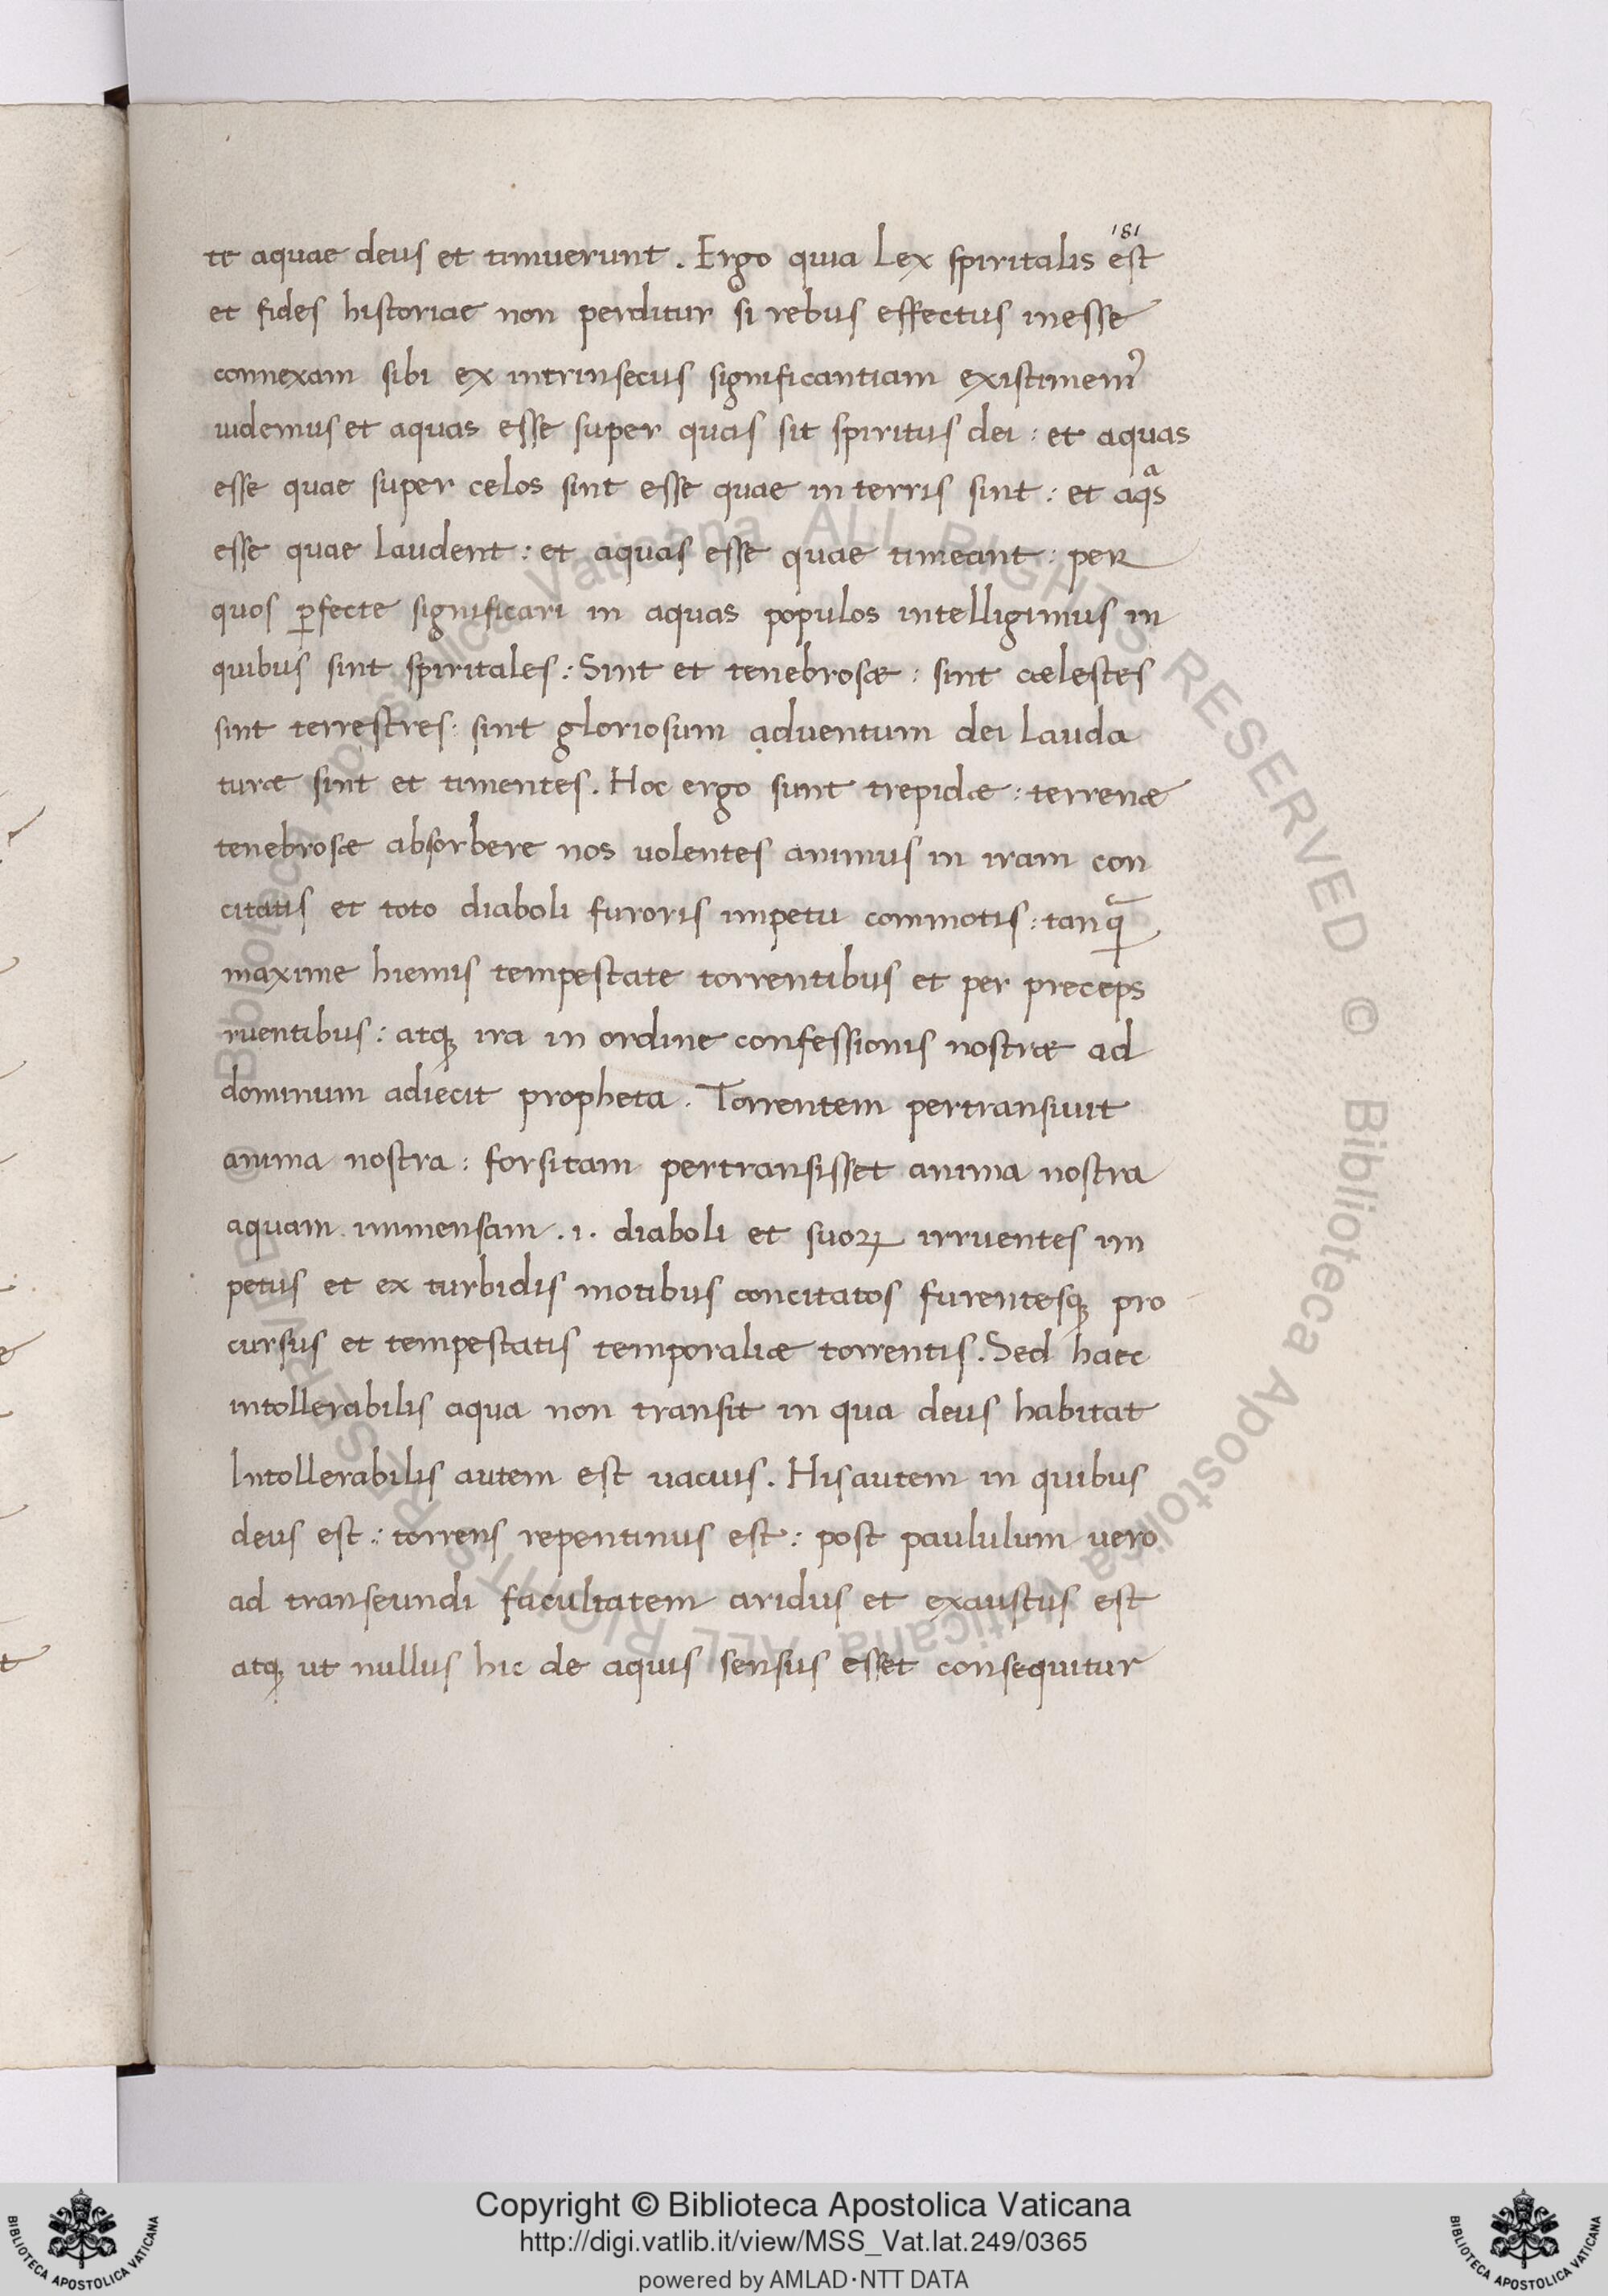 181
te aquae deus et timuerunt. Ergo quia Lex spiritalis est
et fides historiae non perditur si rebus effectus inesse
connexam sibi ex intrinsecus significantiam existimem᾿
uidemus et aquas esse super quas sit spiritus dei : et aquas
esse quae super celos sint esse quae in terris sint : et aqᵃs
esse quae laudent : et aquas esse quae timeant : per
quos ꝑfecte significari in aquas populos intelligimus in
quibus sint spiritales : Sint et tenebrosæ : sint cælestes
sint terrestres : sint gloriosum aduentum dei lauda
turæ sint et timentes. Hoc ergo sunt trepidæ : terrenæ
tenebrosæ absorbere nos uolentes animus in iram con
citatis et toto diaboli furoris impetu commotis : tanq̃
maxime hiemis tempestate torrentibus et per preceps
ruentibus : atq; ira in ordine confessionis nostræ ad
dominum adiecit propheta. Torrentem pertransiuit
anima nostra : forsitam pertransisset anima nostra
aquam immensam .i. diaboli et suoꝝ irruentes im
petus et ex turbidis motibus concitatos furentesq; pro
cursus et tempestatis temporaliæ torrentis. Sed haec
intollerabilis aqua non transit in qua deus habitat
Intollerabilis autem est uacuis. His autem in quibus
deus est : torrens repentinus est : post paululum vero
ad transeundi facultatem aridus et exaustus est
atq; ut nullus hic de aquis sensus esset consequitur
© Biblioteca Apostolica Vaticana ALL RIGHTS RESERVED © Biblioteca Apostolica Vaticana ALL RIGHTS RESERVED
Copyright © Biblioteca Apostolica Vaticana
http://digi.vatlib.it/view/MSS_Vat.lat.249/0365
powered by AMLAD·NTT DATA
BIBLIOTECA APOSTOLICA VATICANA
BIBLIOTECA APOSTOLICA VATICANA